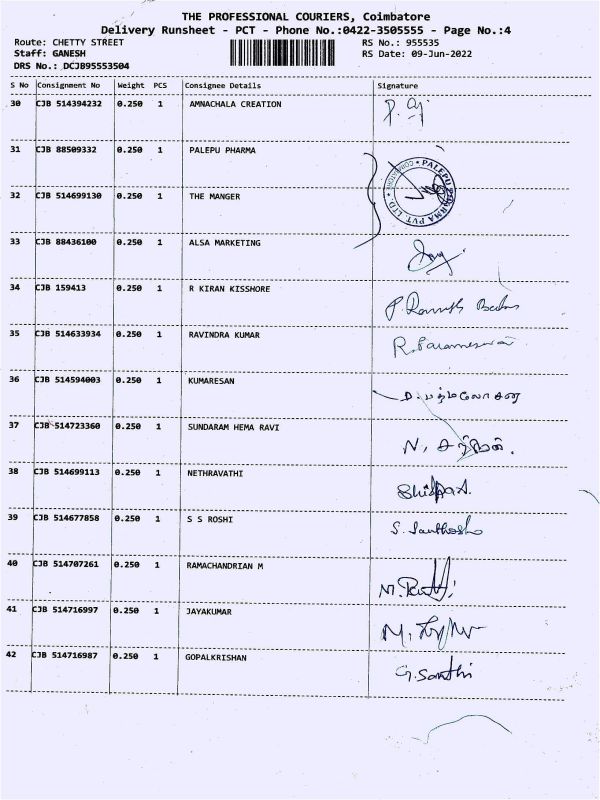 THE PROFESSIONAL COURIERS, Coimbatore
Delivery Runsheet - PCT - Phone No.:0422-3505555 - Page No.:4
Route: CHETTY STREET RS No.: 955535
Staff: GANESH RS Date: 09-Jun-2022
DRS No.: DCJB95553504
S No Consignment No Weight PCS Consignee Details Signature
30 CJB 514394232 0.250 1 AMNACHALA CREATION
31 CJB 88509332 0.250 1 PALEPU PHARMA
PALEPU PHARMA PVT. LTD. * COIMBATORE *
32 CJB 514699130 0.250 1 THE MANGER
33 CJB 88436100 0.250 1 ALSA MARKETING
34 CJB 159413 0.250 1 R KIRAN KISSHORE
35 CJB 514633934 0.250 1 RAVINDRA KUMAR R. Parameswari
36 CJB 514594003 0.250 1 KUMARESAN
37 CJB 514723360 0.250 1 SUNDARAM HEMA RAVI
38 CJB 514699113 0.250 1 NETHRAVATHI
39 CJB 514677858 0.250 1 S S ROSHI S. Santhosh
40 CJB 514707261 0.250 1 RAMACHANDRIAN M
41 CJB 514716997 0.250 1 JAYAKUMAR
42 CJB 514716987 0.250 1 GOPALKRISHAN G. Santhi